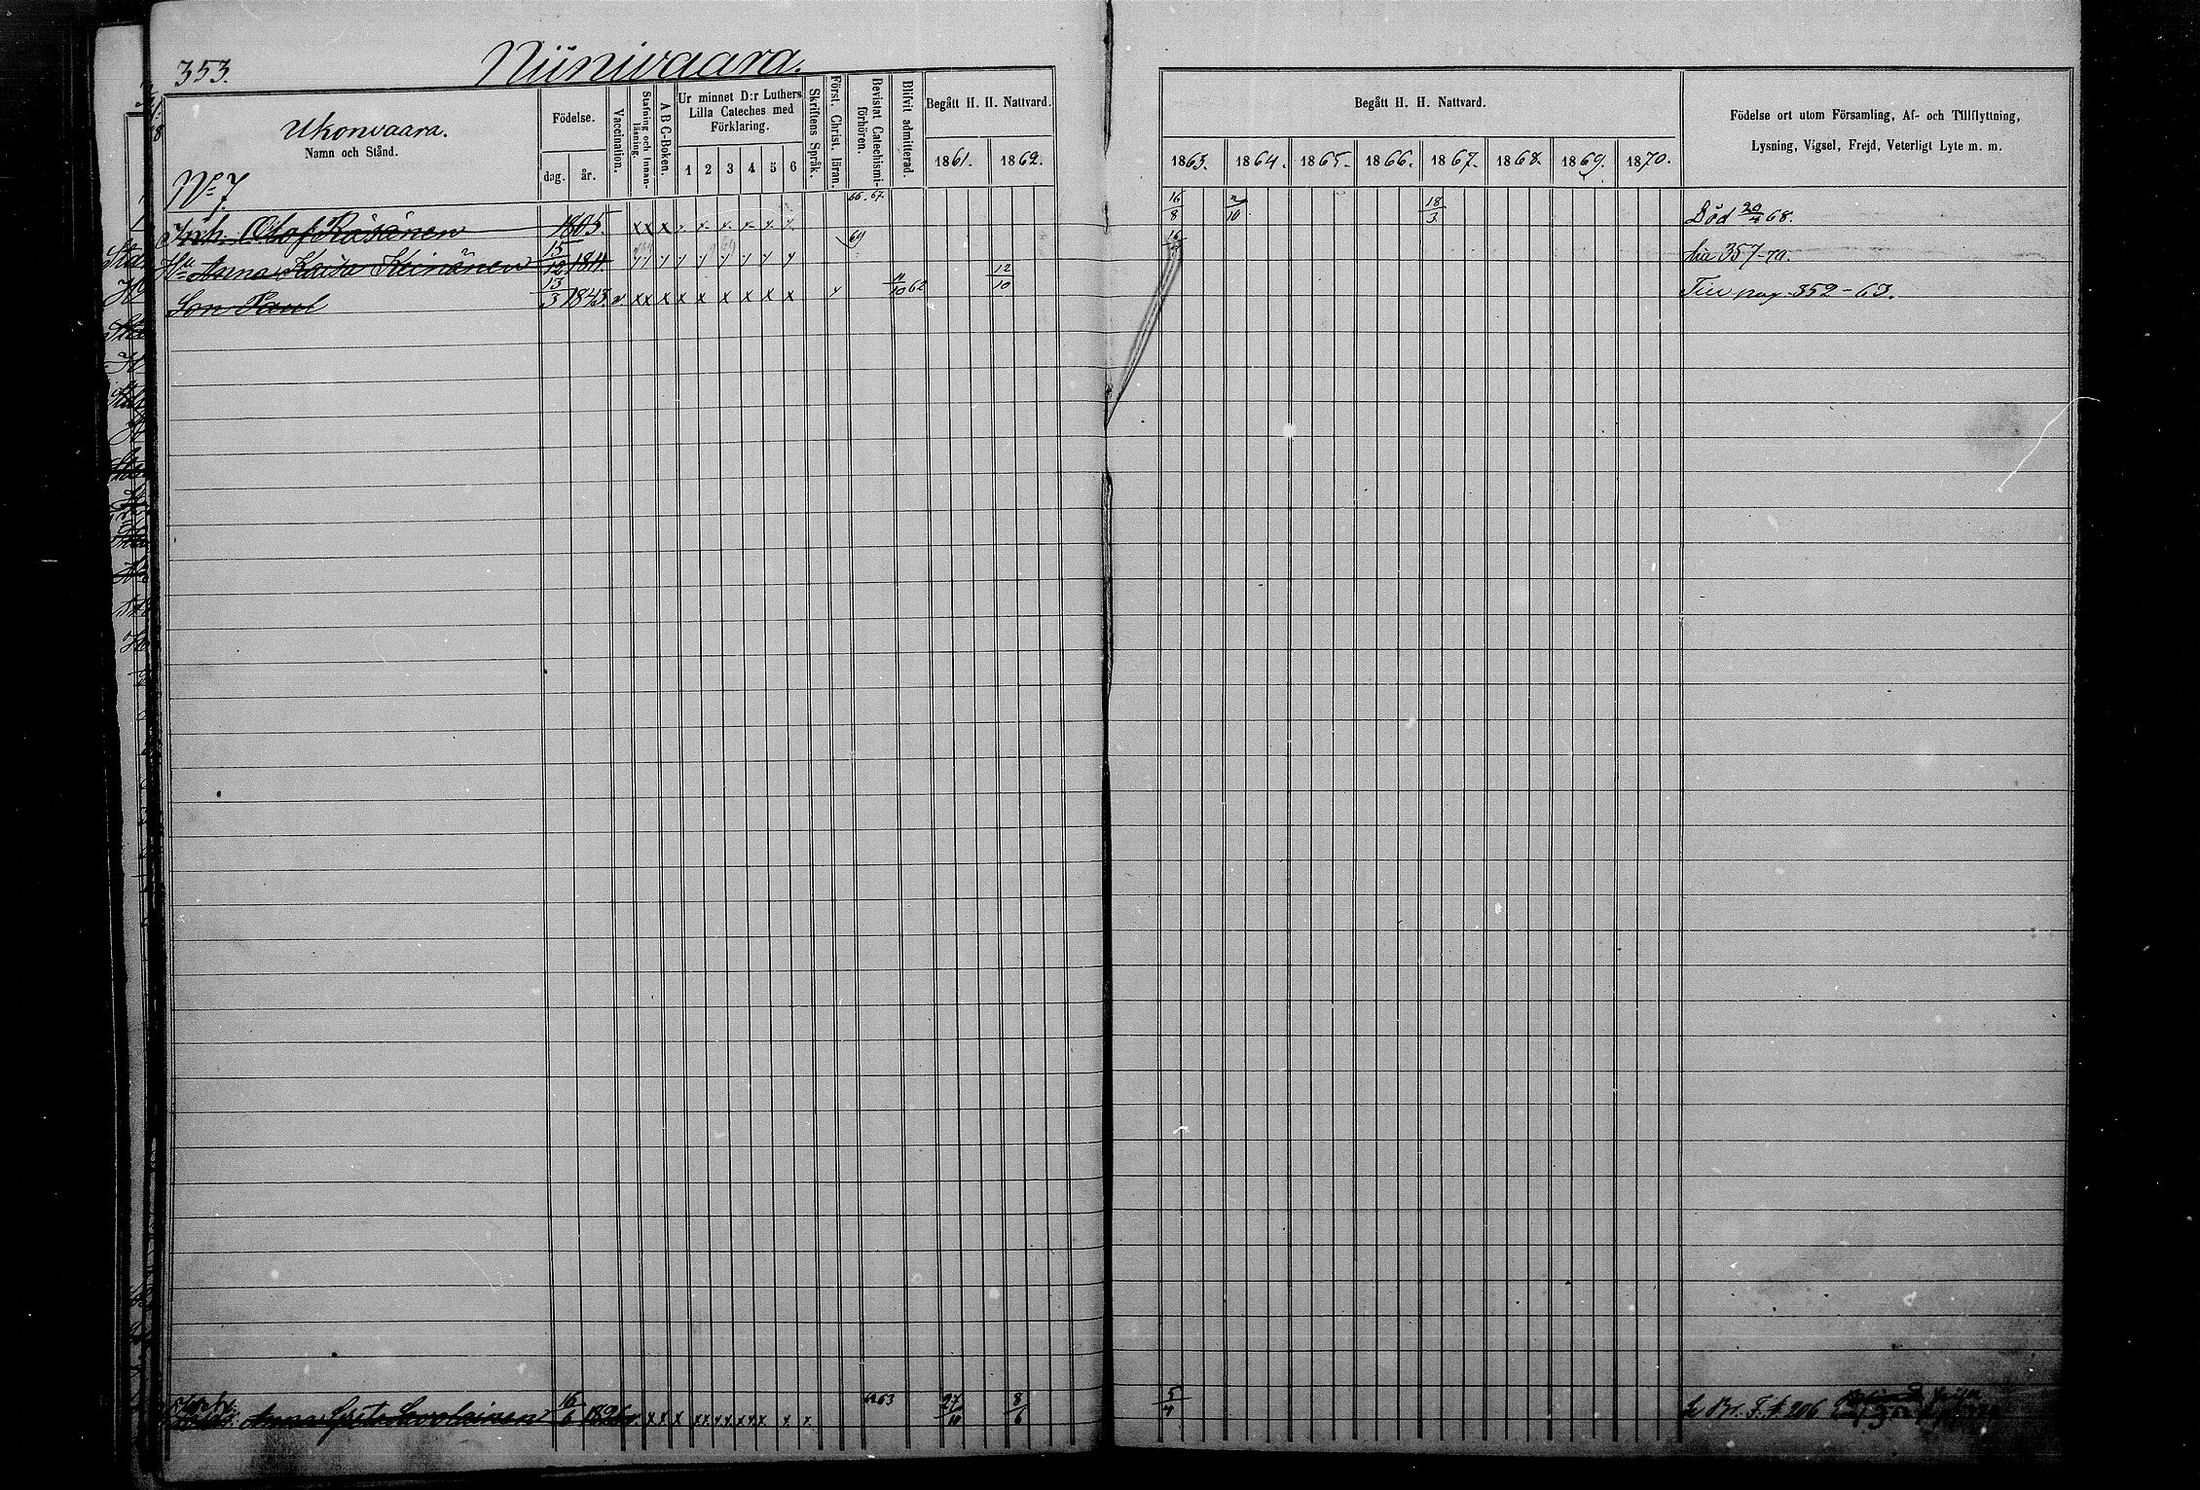 353.
Niinivaara.
Ukonvaara.
Namn och Stånd.
Födelse.
dag. år.
Vaccination.
Stafning och Innan-
läsning.
A B C-Boken.
Ur minnet D:r Luthers
Lilla Cateches med
Förklaring.
1 2 3 4 5 6
Skriftens Språk.
Först. Christ. läran.
Bevistat Catechismi-
förhören.
Blifvit admitterad.
Begått H. H. Nattvard.
1861. 1862.
Begått H. H. Nattvard.
1863. 1864. 1865. 1866. 1867. 1868. 1869. 1870.
Födelse ort utom Församling, Af- och Tillflyttning,
Lysning, Vigsel, Frejd, Veterligt Lyte m. m.
No 7.
Inh. Olof Räsänen 1805. x x x 66-67. 16/8 2/10 18/3 Död 68.
Anna Kaisa Keinänen 15/12 1811. 69 357-70.
Son Paul 13/3 1843. v. x x x x x x x x x 11/10 62 12/10 pag. 352-63.
Anna 16/6 x x x x x x x x x x 63 8/6 5/4 206